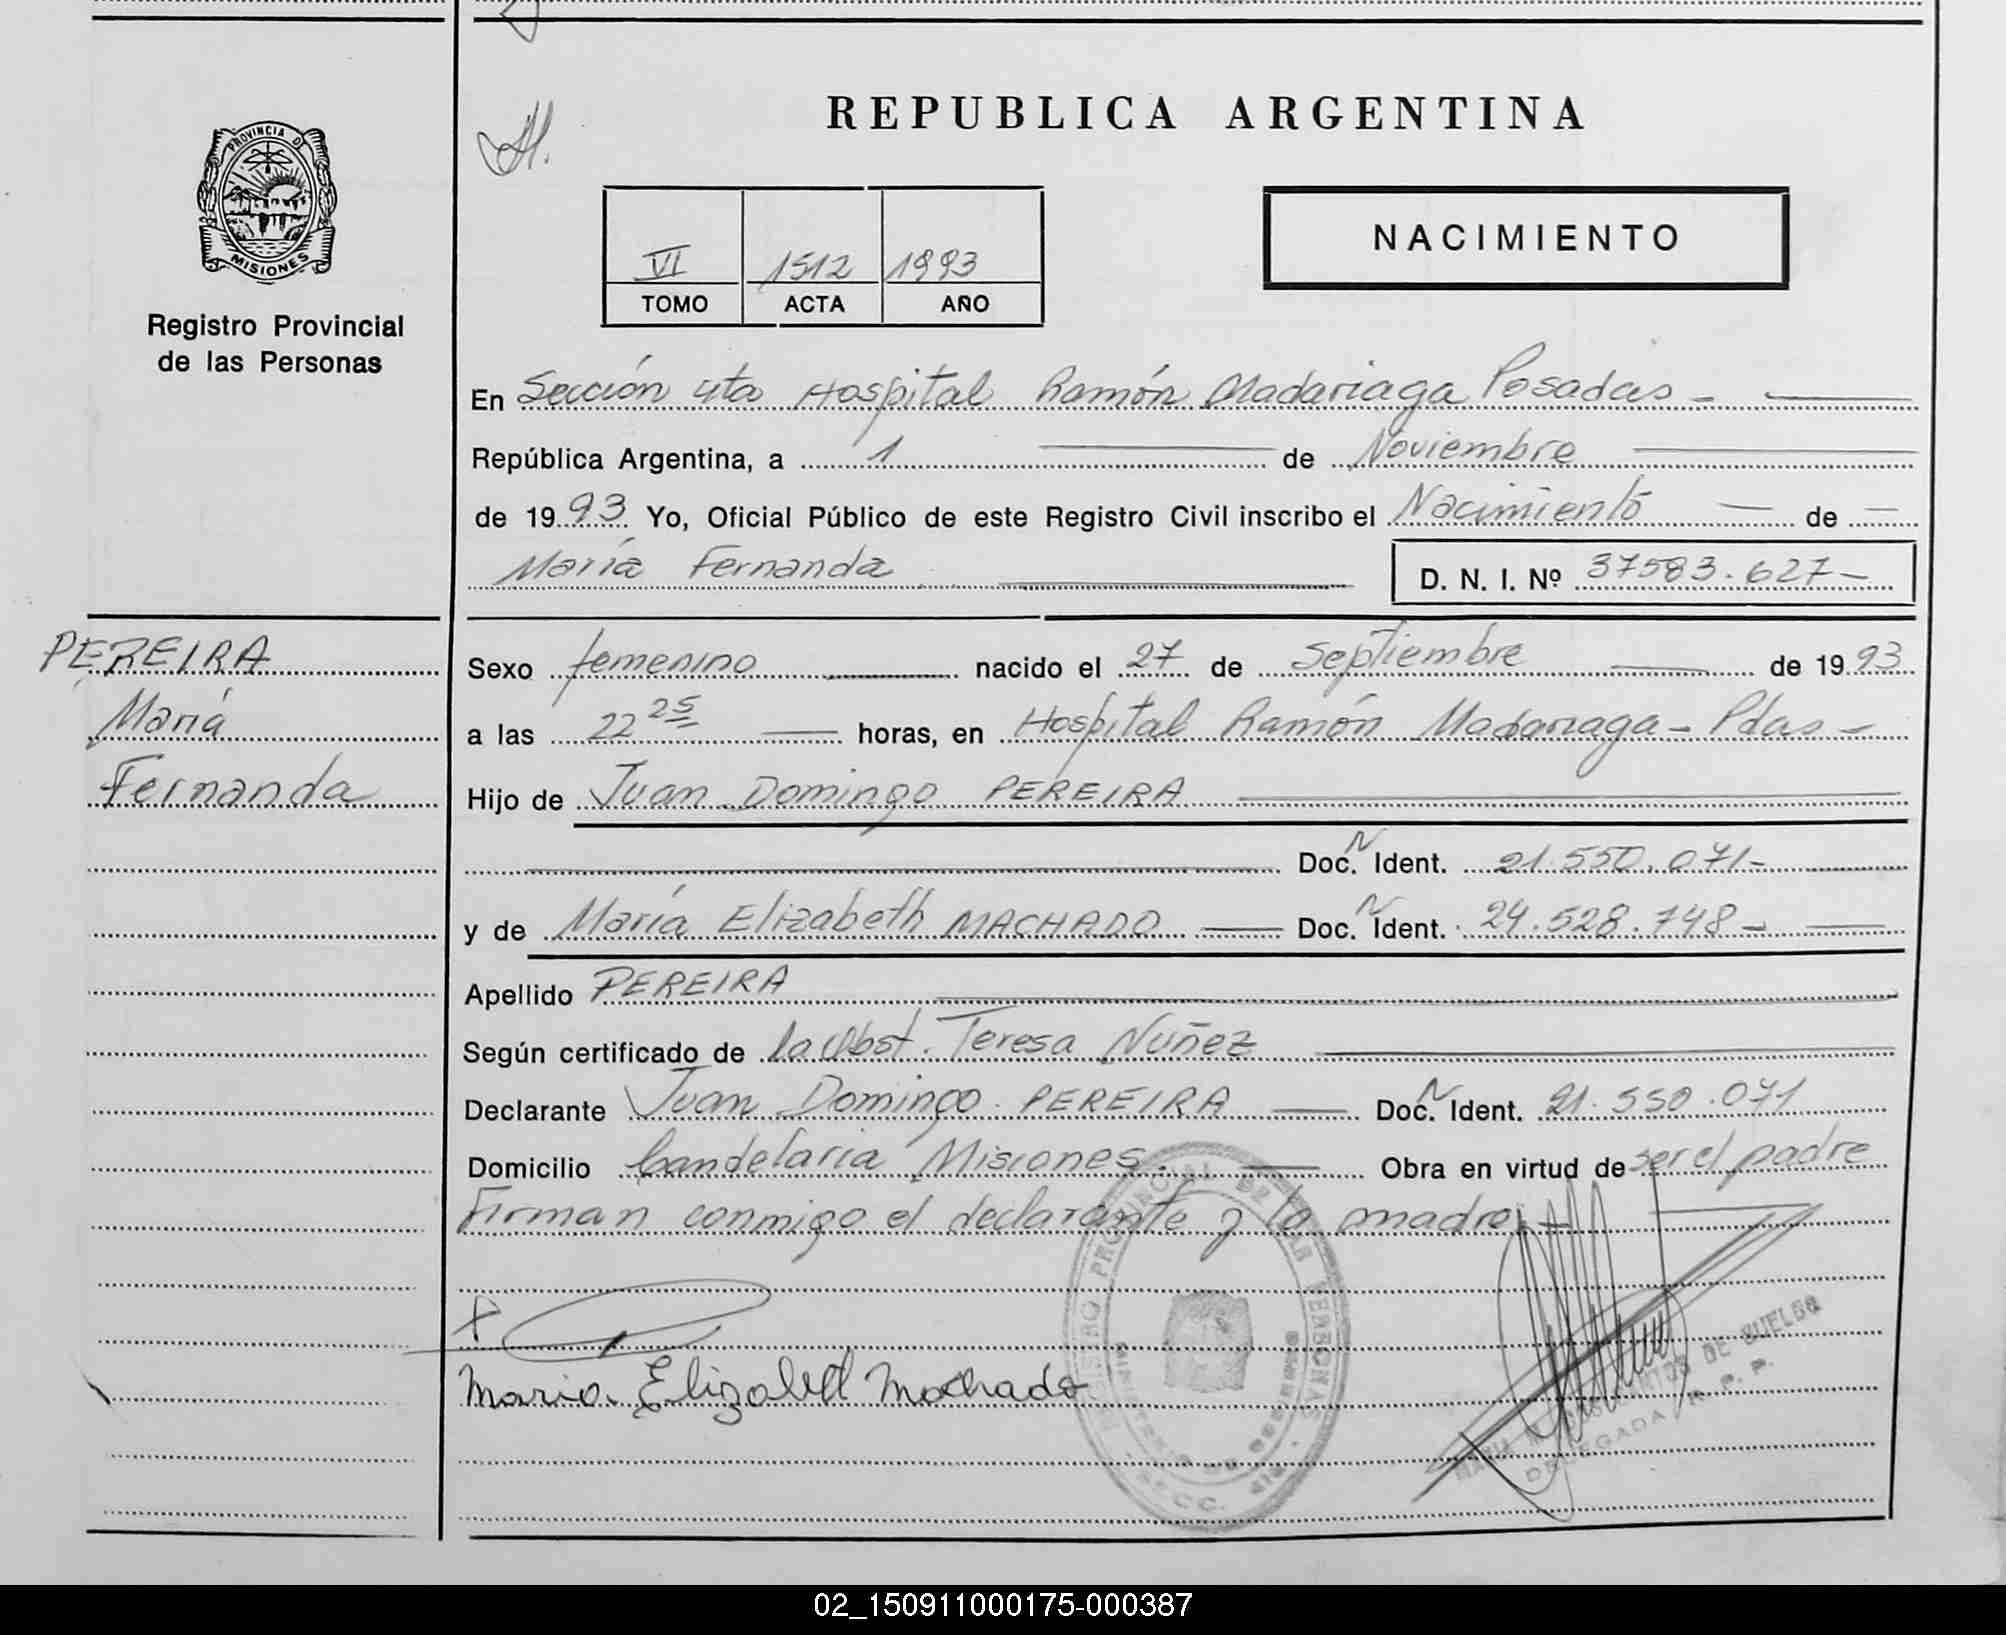 REPUBLICA ARGENTINA
PROVINCIA DE
MISIONES
Registro Provincial
de las Personas
VI 1512 1993
TOMO ACTA AÑO
NACIMIENTO
En Sección 4ta Hospital Ramón Madariaga Posadas -
República Argentina, a 1 de Noviembre
de 1993 Yo, Oficial Público de este Registro Civil inscribo el Nacimiento de
María Fernanda D. N. I. Nº 37583.627-
PEREIRA
María
Fernanda
Sexo femenino nacido el 27 de Septiembre de 1993
a las 22 25 horas, en Hospital Ramón Madariaga - Pdas -
Hijo de Juan Domingo PEREIRA
Doc. N Ident. 21.550.071-
y de María Elizabeth MACHADO Doc. N Ident. 24.528.748-
Apellido PEREIRA
Según certificado de la Obst. Teresa Nuñez
Declarante Juan Domingo PEREIRA Doc. N Ident. 21.550.071
Domicilio Candelaria Misiones. Obra en virtud de ser el padre
Firman conmigo el declarante y la madre -
Maria Elizabeth Machado
REGISTRO PROVINCIAL DE LAS PERSONAS
DE SUELDO
DELEGADA R. P. P.
02_150911000175-000387